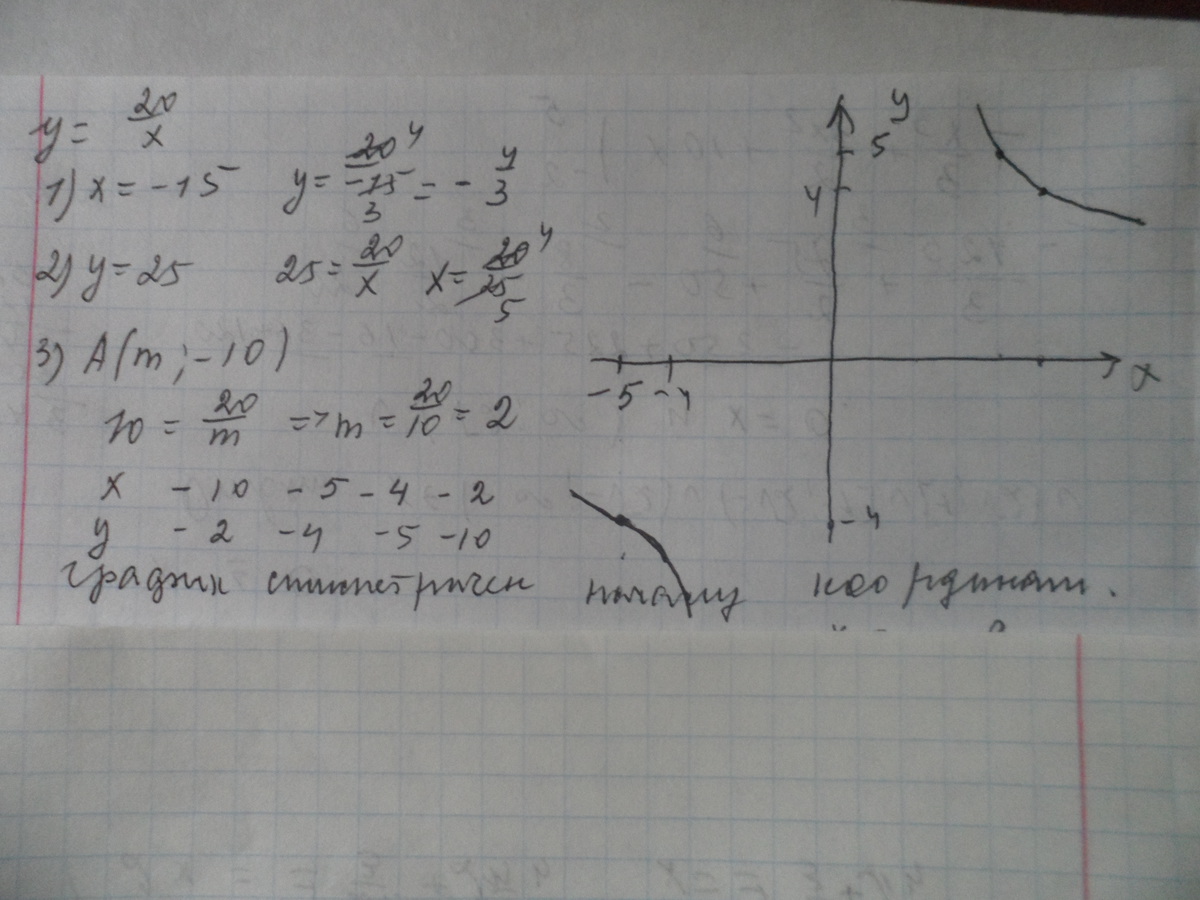 y = 20/x
1) x = -15 y = 20 4/-15 3 = - 4/3
2) y = 25 25 = 20/x x = 20 4/25 5
3) A(m; -10)
10 = 20/m => m = 20/10 = 2
x -10 -5 -4 -2
y -2 -4 -5 -10
график симметричен началу координат.
y
5
4
-5 -4 x
-4